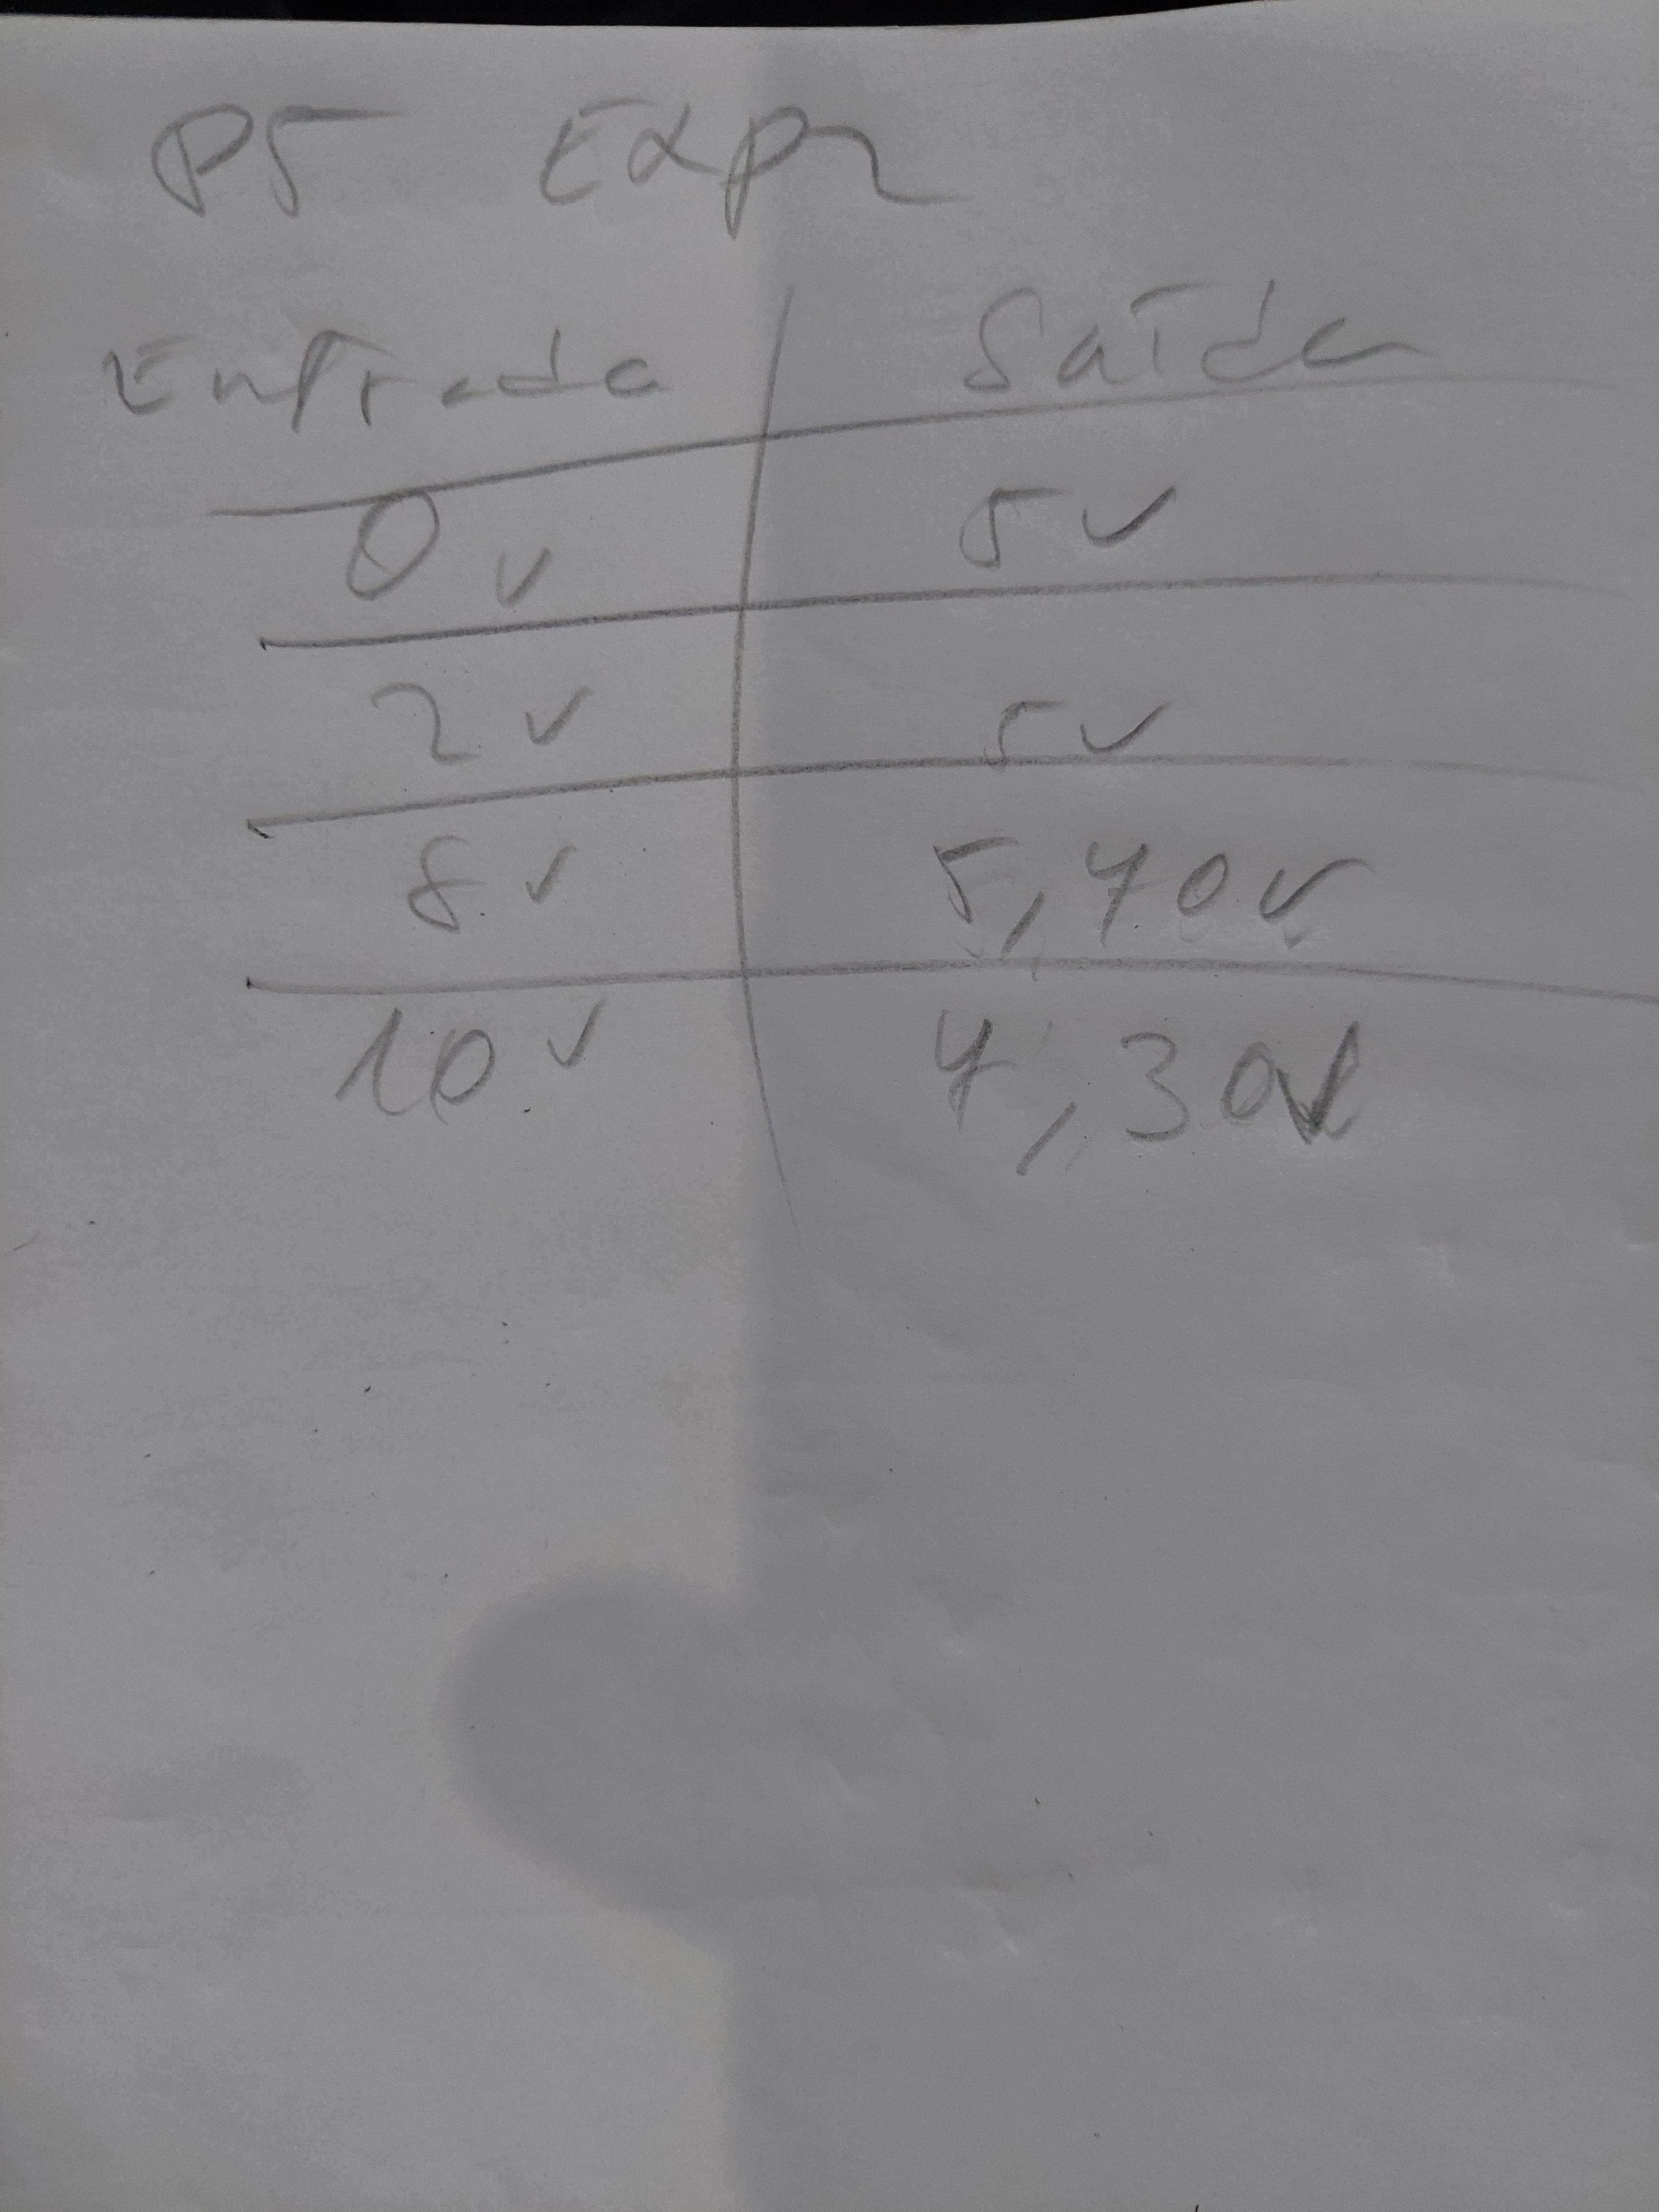 P5 Exp2
Entrada Saída
0 v 5 v
2 v 5 v
8 v 5,40 v
10 v 4,30 v